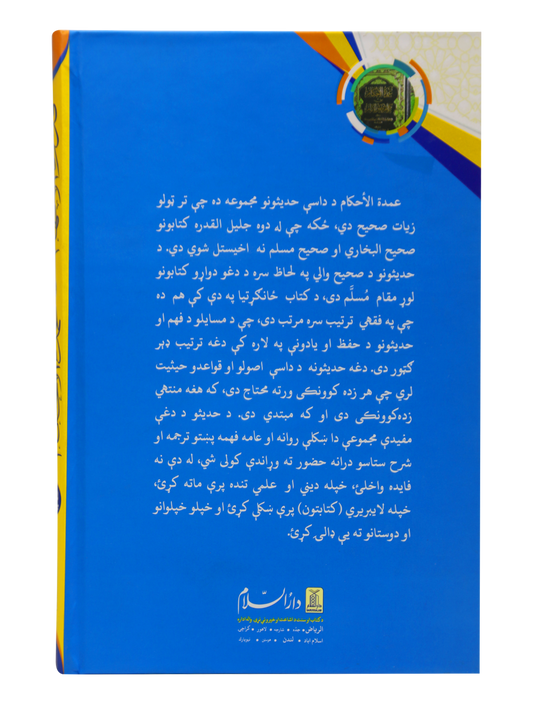 عمدة الأحکام د داسې حدیثونو مجموعه ده چې تر ټولو
زیات صحیح دي، ځکه چې له دوه جلیل القدره کتابونو
صحیح البخاري او صحیح مسلم نه اخیستل شوي دي. د
حدیثونو د صحیح والي په لحاظ سره د دغو دواړو کتابونو
لوړ مقام مُسلَّم دی، د کتاب ځانګړتیا په دې کې هم ده
چې په فقهي ترتیب سره مرتب دی، چې د مسایلو د فهم او
حدیثونو د حفظ او یادونې په لاره کې دغه ترتیب ډېر
ګټور دی. دغه حدیثونه د داسې اصولو او قواعدو حیثیت
لري چې هر زده کوونکی ورته محتاج دی، که هغه منتهي
زده‌کوونکی دی او که مبتدي دی. د حدیثو د دغې
مفیدې مجموعې دا ښکلې روانه او عامه فهمه پښتو ترجمه او
شرح ستاسو درانه حضور ته وړاندې کولی شي، له دې نه
فایده واخلئ، خپله دیني او علمي تنده پرې ماته کړئ،
خپله لایبریري (کتابتون) پرې ښکلې کړئ او خپلو خپلوانو
او دوستانو ته یې ډالۍ کړئ.
دارُالسّلام
الریاض • جده • شارجه • لاهور • کراچی
اسلام آباد • لندن • هیوسټن • نیویارک